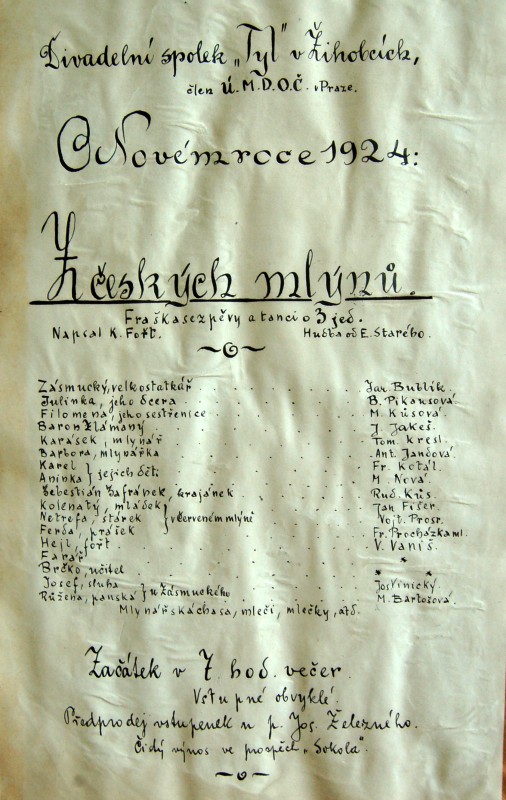 Divadelní spolek „Tyl" v Žihobcích,
člen Ú.M.D.O.Č. v Praze.
O Novém roce 1924:
Z českých mlýnů.
Fraška se zpěvy a tanci o 3 jed.
Napsal K. Fořt. Hudba od E. Starého.
Zásmucký, velkostatkář . . . . Jar. Bublík.
Julinka, jeho dcera . . . . B. Pikausová.
Filomena, jeho sestřenice . . . . M. Kůsová.
Baron Zlámaný . . . . J. Jakeš.
Karásek, mlynář . . . . Tom. Kresl.
Barbora, mlynářka . . . . Ant. Jandová.
Karel } jejich děti . . . . Fr. Kotál.
Aninka . . . . M. Nová.
Šebestián Šafránek, krajánek . . . . Rud. Kůs.
Kolenatý, mládek } v červeném mlýně . . . . Jan Fišer.
Netrefa, stárek . . . . Vojt. Prosr.
Ferda, prášek . . . . Fr. Procházka ml.
Hejl, fořt . . . . V. Vaniš.
Farář . . . . *
Brčko, učitel . . . . * *
Josef, sluha } u Zásmuckého . . . . Jos. Vinický.
Růžena, panská . . . . M. Bartošová.
Mlynářská chasa, mlečí, mlečky, atd.
Začátek v 7 hod. večer.
Vstupné obvyklé.
Předprodej vstupenek u p. Jos. Železného.
Čistý výnos ve prospěch „Sokola".